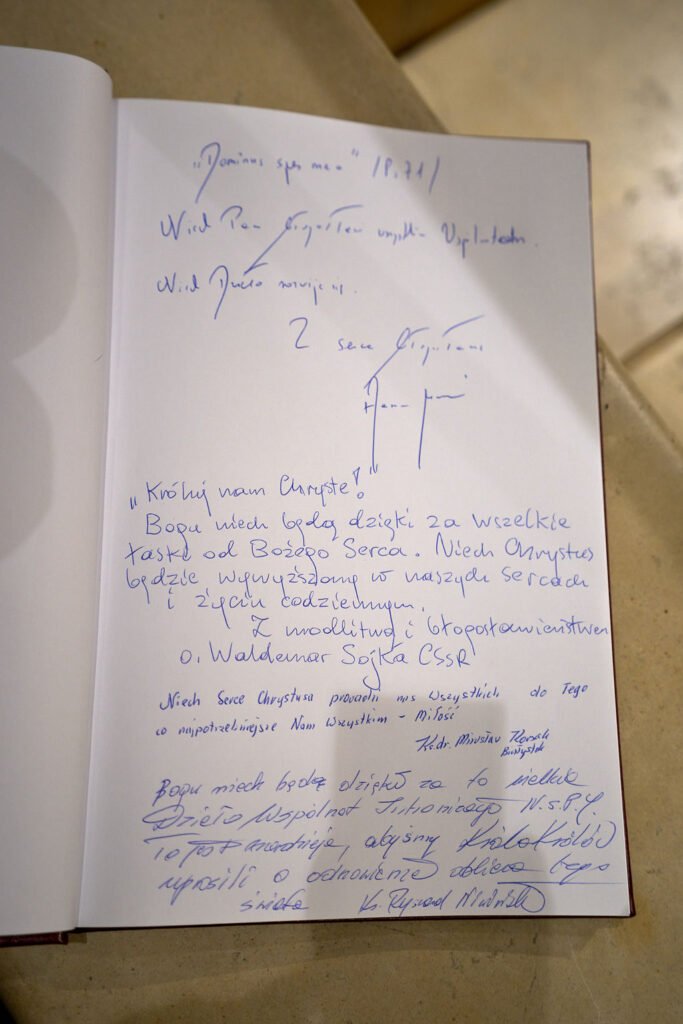 „Dominus spes mea" /P. 71/
Niech Pan Chrystus wszystkim
Niech Dzieło rozwija się.
Z serca
„Króluj nam Chryste!"
Bogu niech będą dzięki za wszelkie
łaski od Bożego Serca. Niech Chrystus
będzie wywyższony w naszych sercach
i życiu codziennym.
Z modlitwą i błogosławieństwem
o. Waldemar Sojka CSSR
Niech Serce Chrystusa prowadzi nas Wszystkich do Tego
co najpotrzebniejsze Nam Wszystkim - Miłość
Ks. dr. Mirosław
Białystok
Bogu niech będą dzięki za to wielkie
Dzieło Wspólnot N.S.P.J.
To jest nadzieja, abyśmy Króla Królów
uprosili o odnowienie oblicza tego
świata Ks. Ryszard